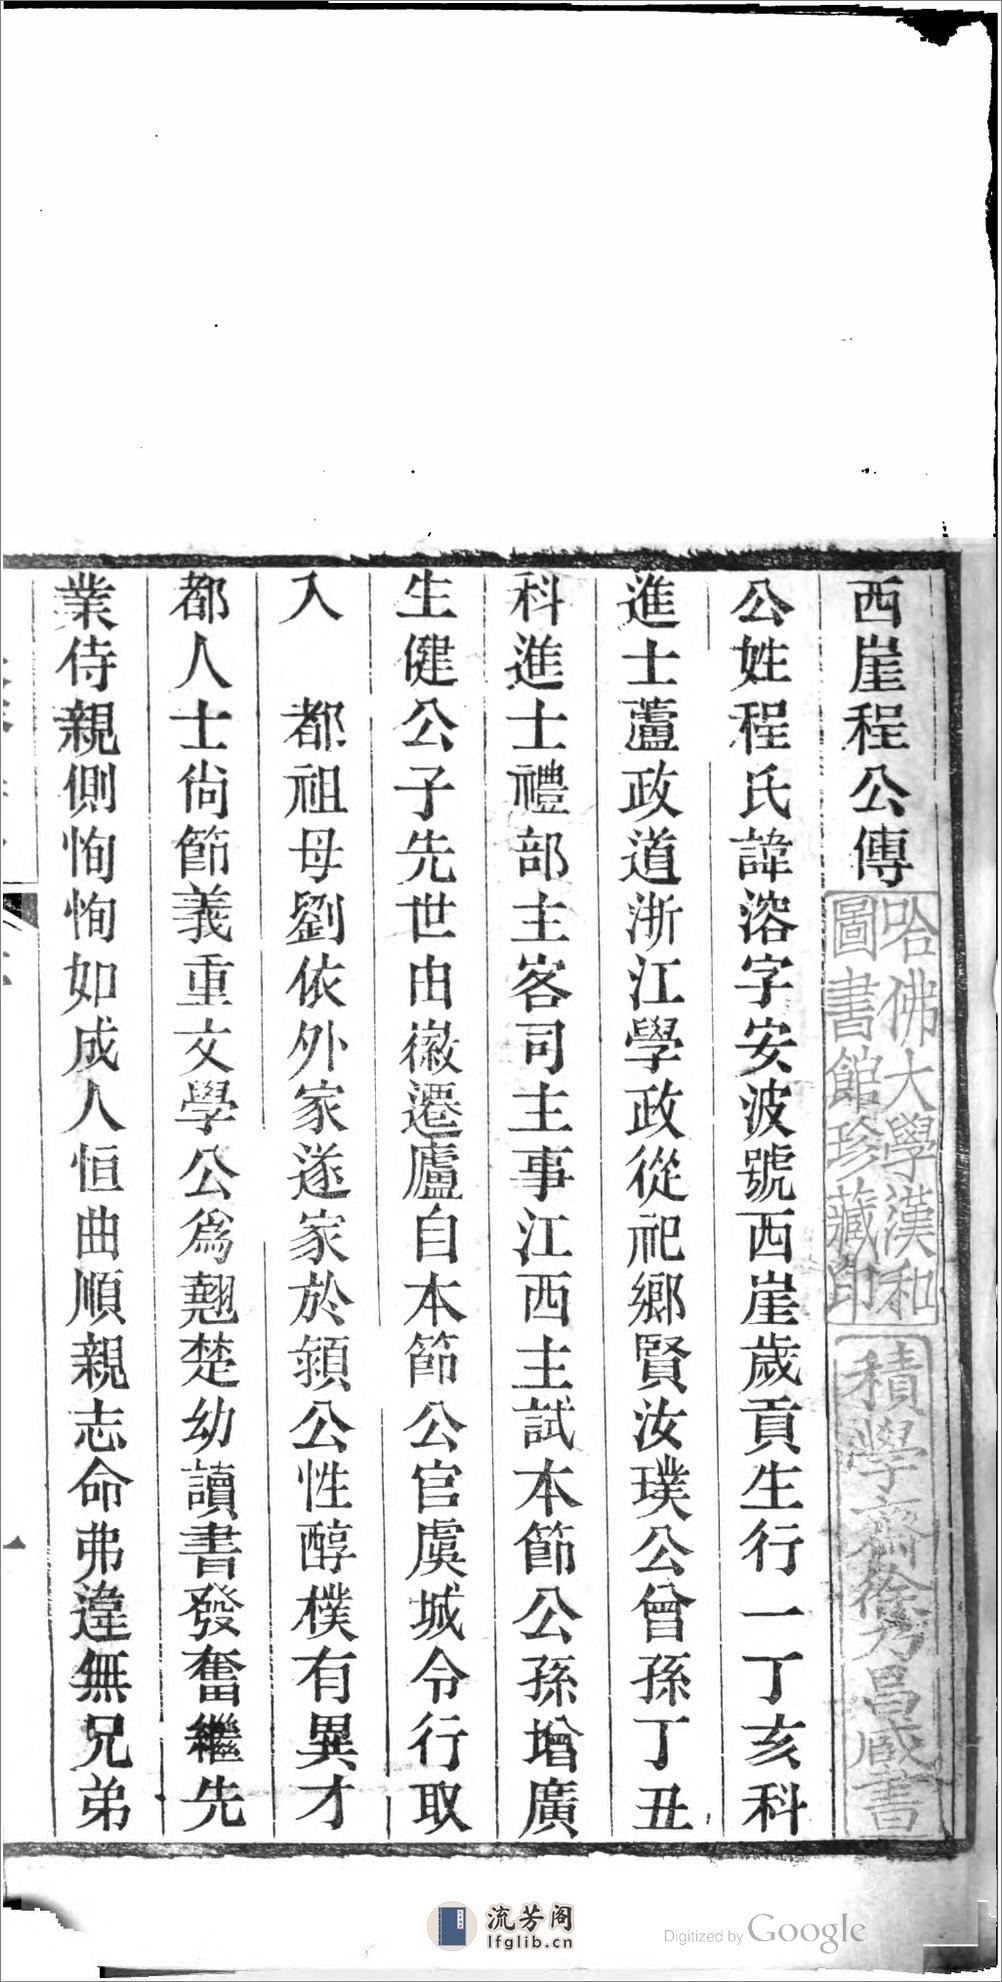 西崖程公傳
哈佛大學漢和
圖書館珍藏印
積學齋徐乃昌藏書
公姓程氏諱溶字安波號西崖歲貢生行一丁亥科
進士蘆政道浙江學政從祀鄉賢汝璞公曾孫丁丑
科進士禮部主客司主事江西主試本節公孫增廣
生健公子先世由徽遷廬自本節公官虞城令行取
入　都祖母劉依外家遂家於潁公性醇樸有異才
都人士尙節義重文學公爲翹楚幼讀書發奮繼先
業侍親側恂恂如成人恒曲順親志命弗違無兄弟
一
流芳阁
lfglib.cn
Digitized by Google